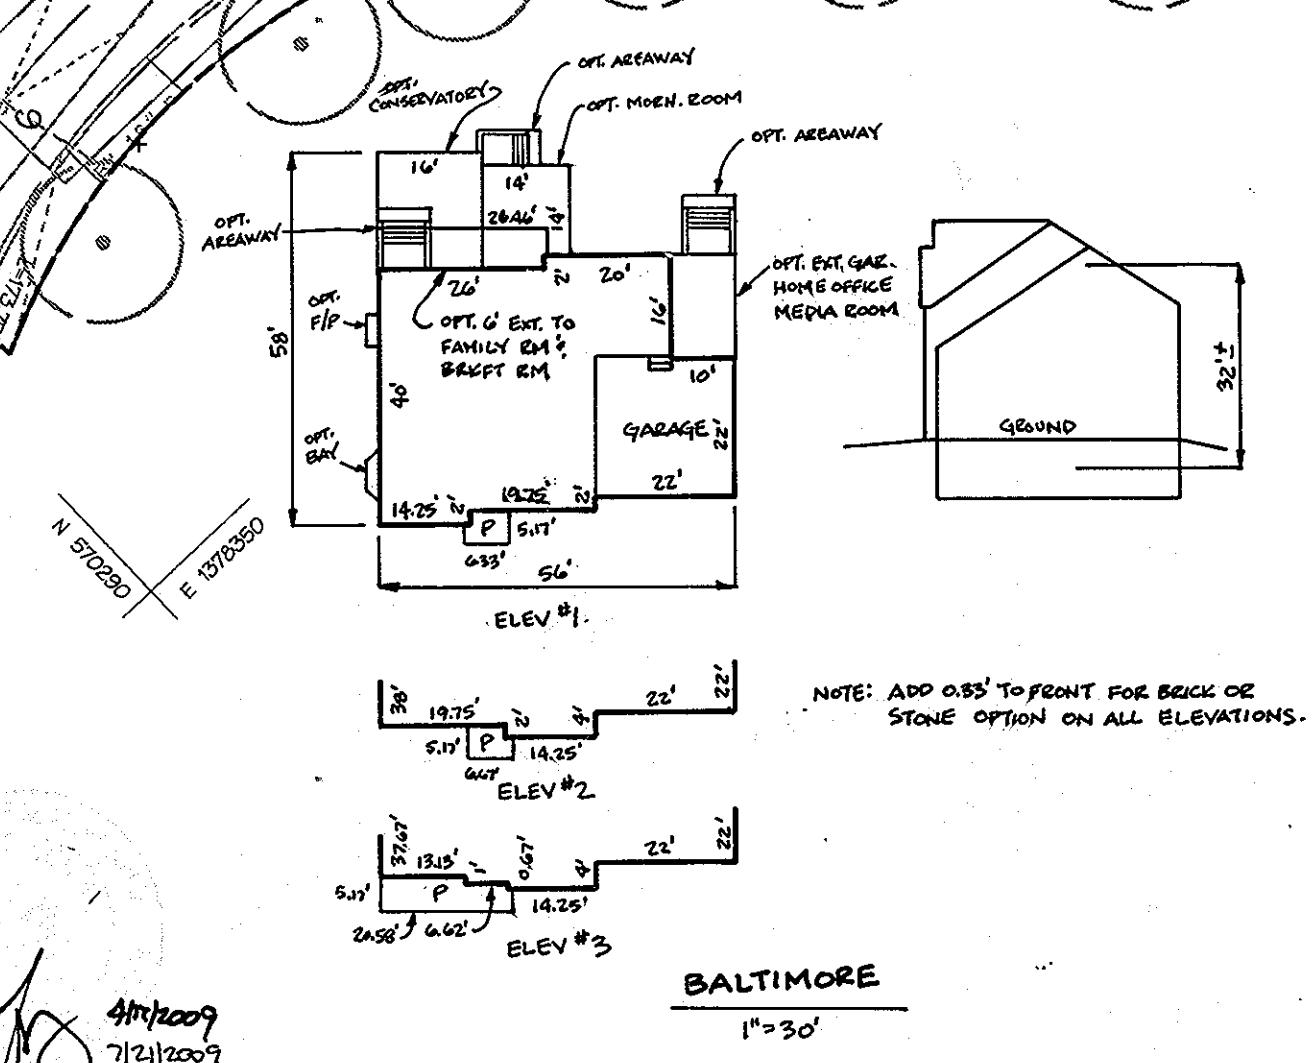 OPT. AREAWAY
OPT.
CONSERVATORY
OPT. MORN. ROOM
OPT. AREAWAY
16'
14'
26.46'
14'
OPT.
AREAWAY
26'
2'
20'
OPT. EXT. GAR.
HOME OFFICE
MEDIA ROOM
OPT.
F/P
OPT. 6' EXT. TO
FAMILY RM &
BRKFT RM
16'
58'
32'±
40'
10'
GARAGE
22'
GROUND
OPT.
BAY
22'
14.25'
2'
19.75'
2'
P
5.17'
6.33'
56'
ELEV #1.
N 570290
E 1378350
38'
19.75'
2'
4'
22'
22'
5.17'
P
14.25'
6.67'
ELEV #2
NOTE: ADD 0.33' TO FRONT FOR BRICK OR
STONE OPTION ON ALL ELEVATIONS.
37.67'
13.13'
1'
0.67'
4'
22'
22'
5.17'
P
14.25'
6.62'
ELEV #3
BALTIMORE
1"=30'
6
7/21/2009